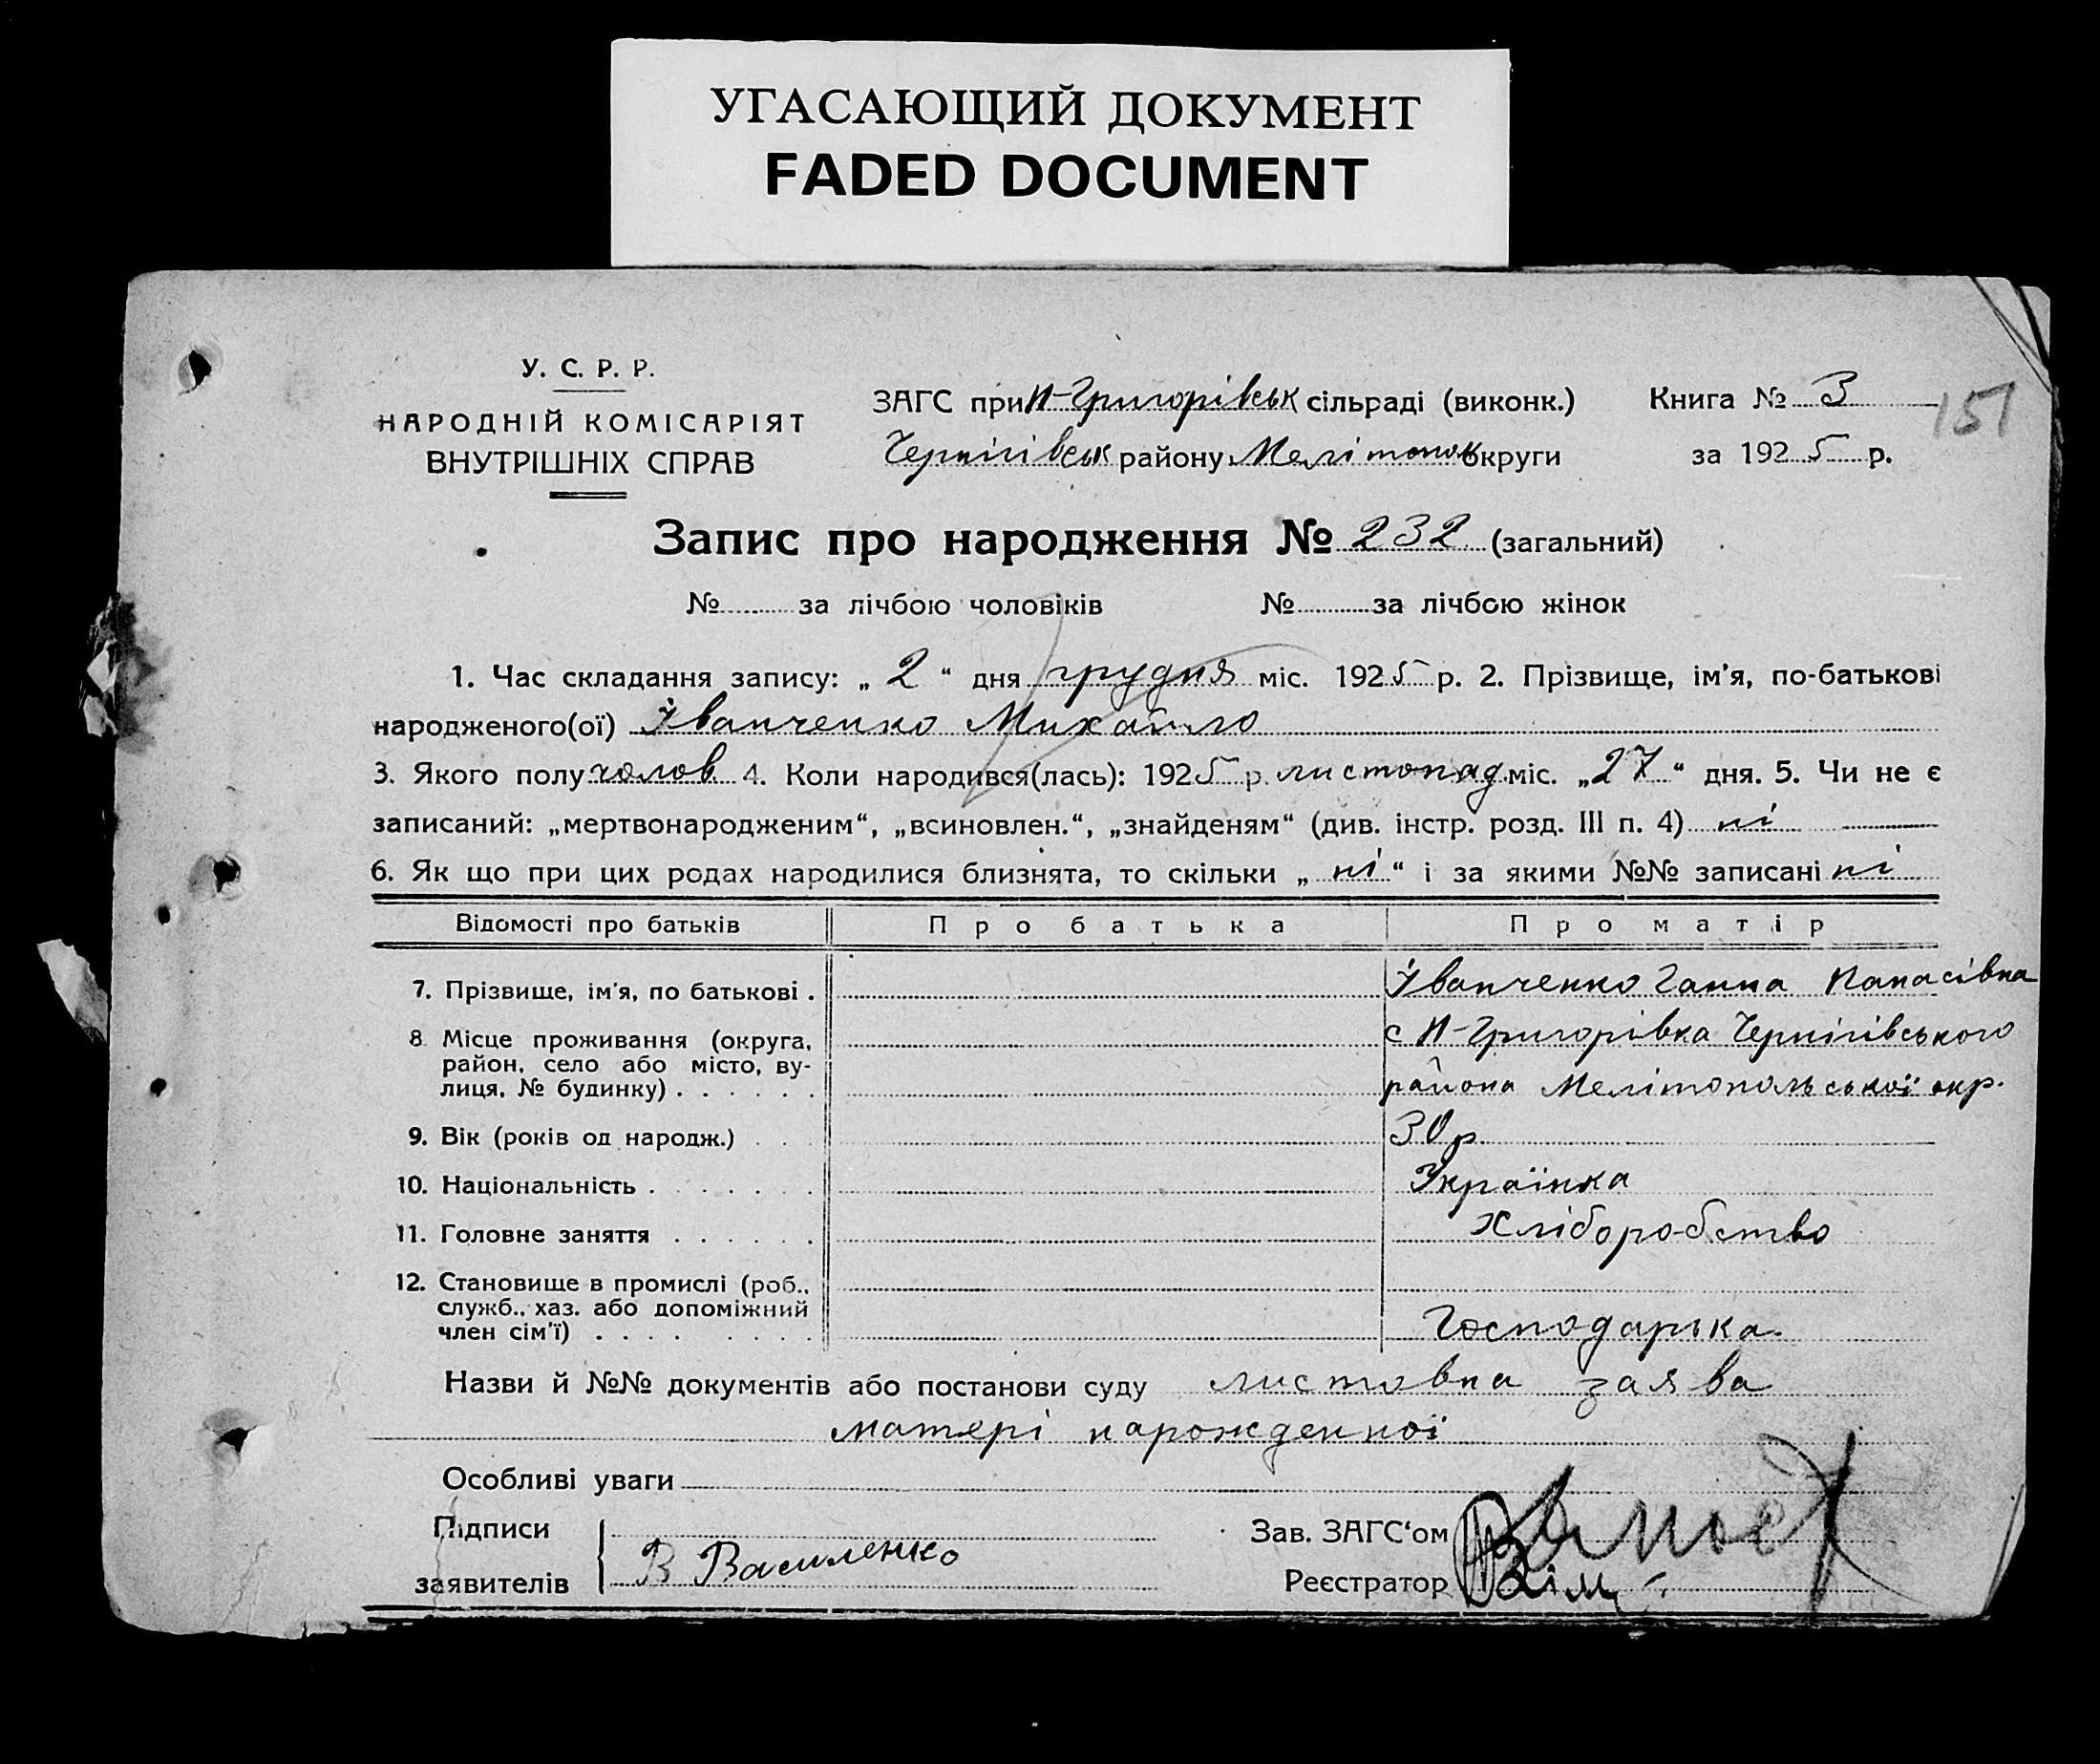 УГАСАЮЩИЙ ДОКУМЕНТ
FADED DOCUMENT
У. С. Р. Р.
НАРОДНІЙ КОМІСАРІЯТ
ВНУТРІШНІХ СПРАВ
ЗАГС при Н-Григорівськ сільраді (виконк.)
Чернігівськ району Мелітопол округи
Книга № 3
за 1925 р.
151
Запис про народження № 232 (загальний)
№ за лічбою чоловіків № за лічбою жінок
1. Час складання запису: „ 2 “ дня грудня міс. 1925 р. 2. Прізвище, ім'я, по-батькові
народженого(ої) Іванченко Михайло
3. Якого полу чолов. 4. Коли народився(лась): 1925 р. листопад міс. „27“ дня. 5. Чи не є
записаний: „мертвонародженим“, „всиновлен.“, „знайденям“ (див. інстр. розд. III п. 4) ні
6. Як що при цих родах народилися близнята, то скільки „ ні “ і за якими №№ записані ні
Відомості про батьків Про батька Про матір
7. Прізвище, ім'я, по батькові . Іванченко Ганна Панасівна
8. Місце проживання (округа, с Н-Григорівка Чернігівського
район, село або місто, ву-
лиця, № будинку) . . . . . . района Мелітопольської окр.
9. Вік (років од народж.) . . 30 р
10. Національність . . . . . . Українка
11. Головне заняття . . . . . . Хліборобство
12. Становище в промислі (роб.,
служб., хаз. або допоміжний
член сім'ї) . . . . . . . . Господарька.
Назви й №№ документів або постанови суду листовна заява
матері нарожденної
Особливі уваги
Підписи
заявителів
В Василенко
Зав. ЗАГС‘ом
Реєстратор